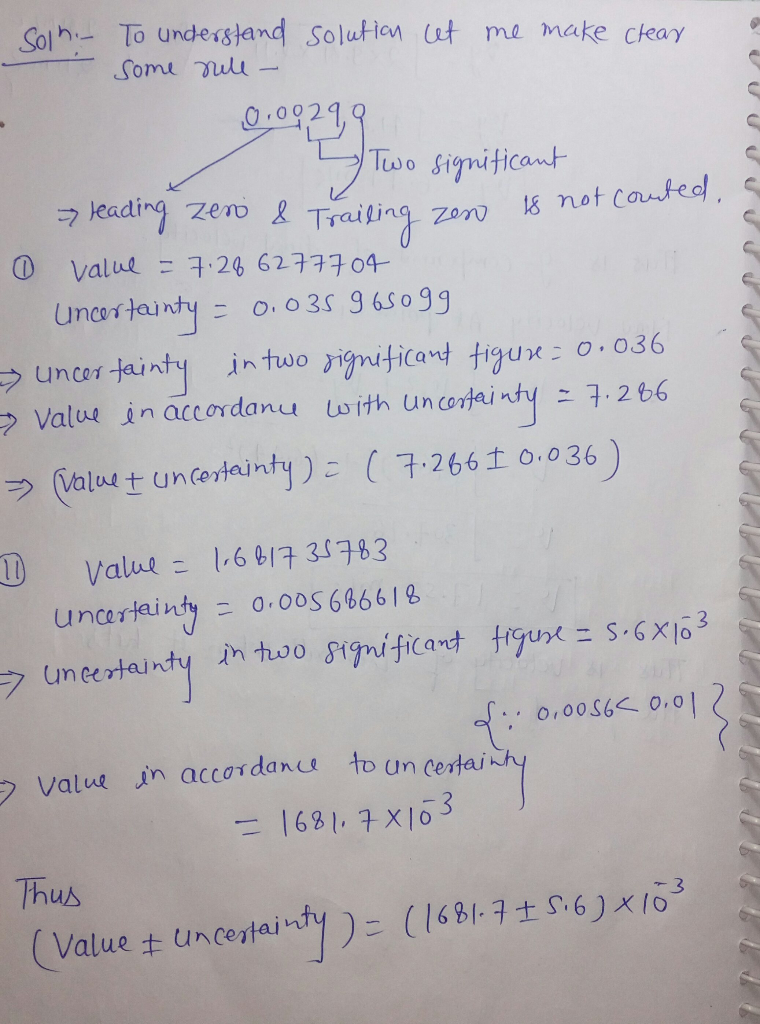 Solⁿ:- To understand solution let me make clear
some rule -
0.00290
Two significant
⇒ leading zero & Trailing zero is not counted.
① Value = 7.286277704
Uncertainty = 0.035965099
⇒ uncertainty in two significant figure = 0.036
⇒ Value in accordance with uncertainty = 7.286
⇒ (Value ± uncertainty) = ( 7.286 ± 0.036 )
⑪ Value = 1.681735783
Uncertainty = 0.005686618
⇒ uncertainty in two significant figure = 5.6×10⁻³
{∵ 0.0056< 0.01}
⇒ Value in accordance to uncertainty
= 1681.7 ×10⁻³
Thus
(Value ± uncertainty) = (1681.7 ± 5.6) ×10⁻³